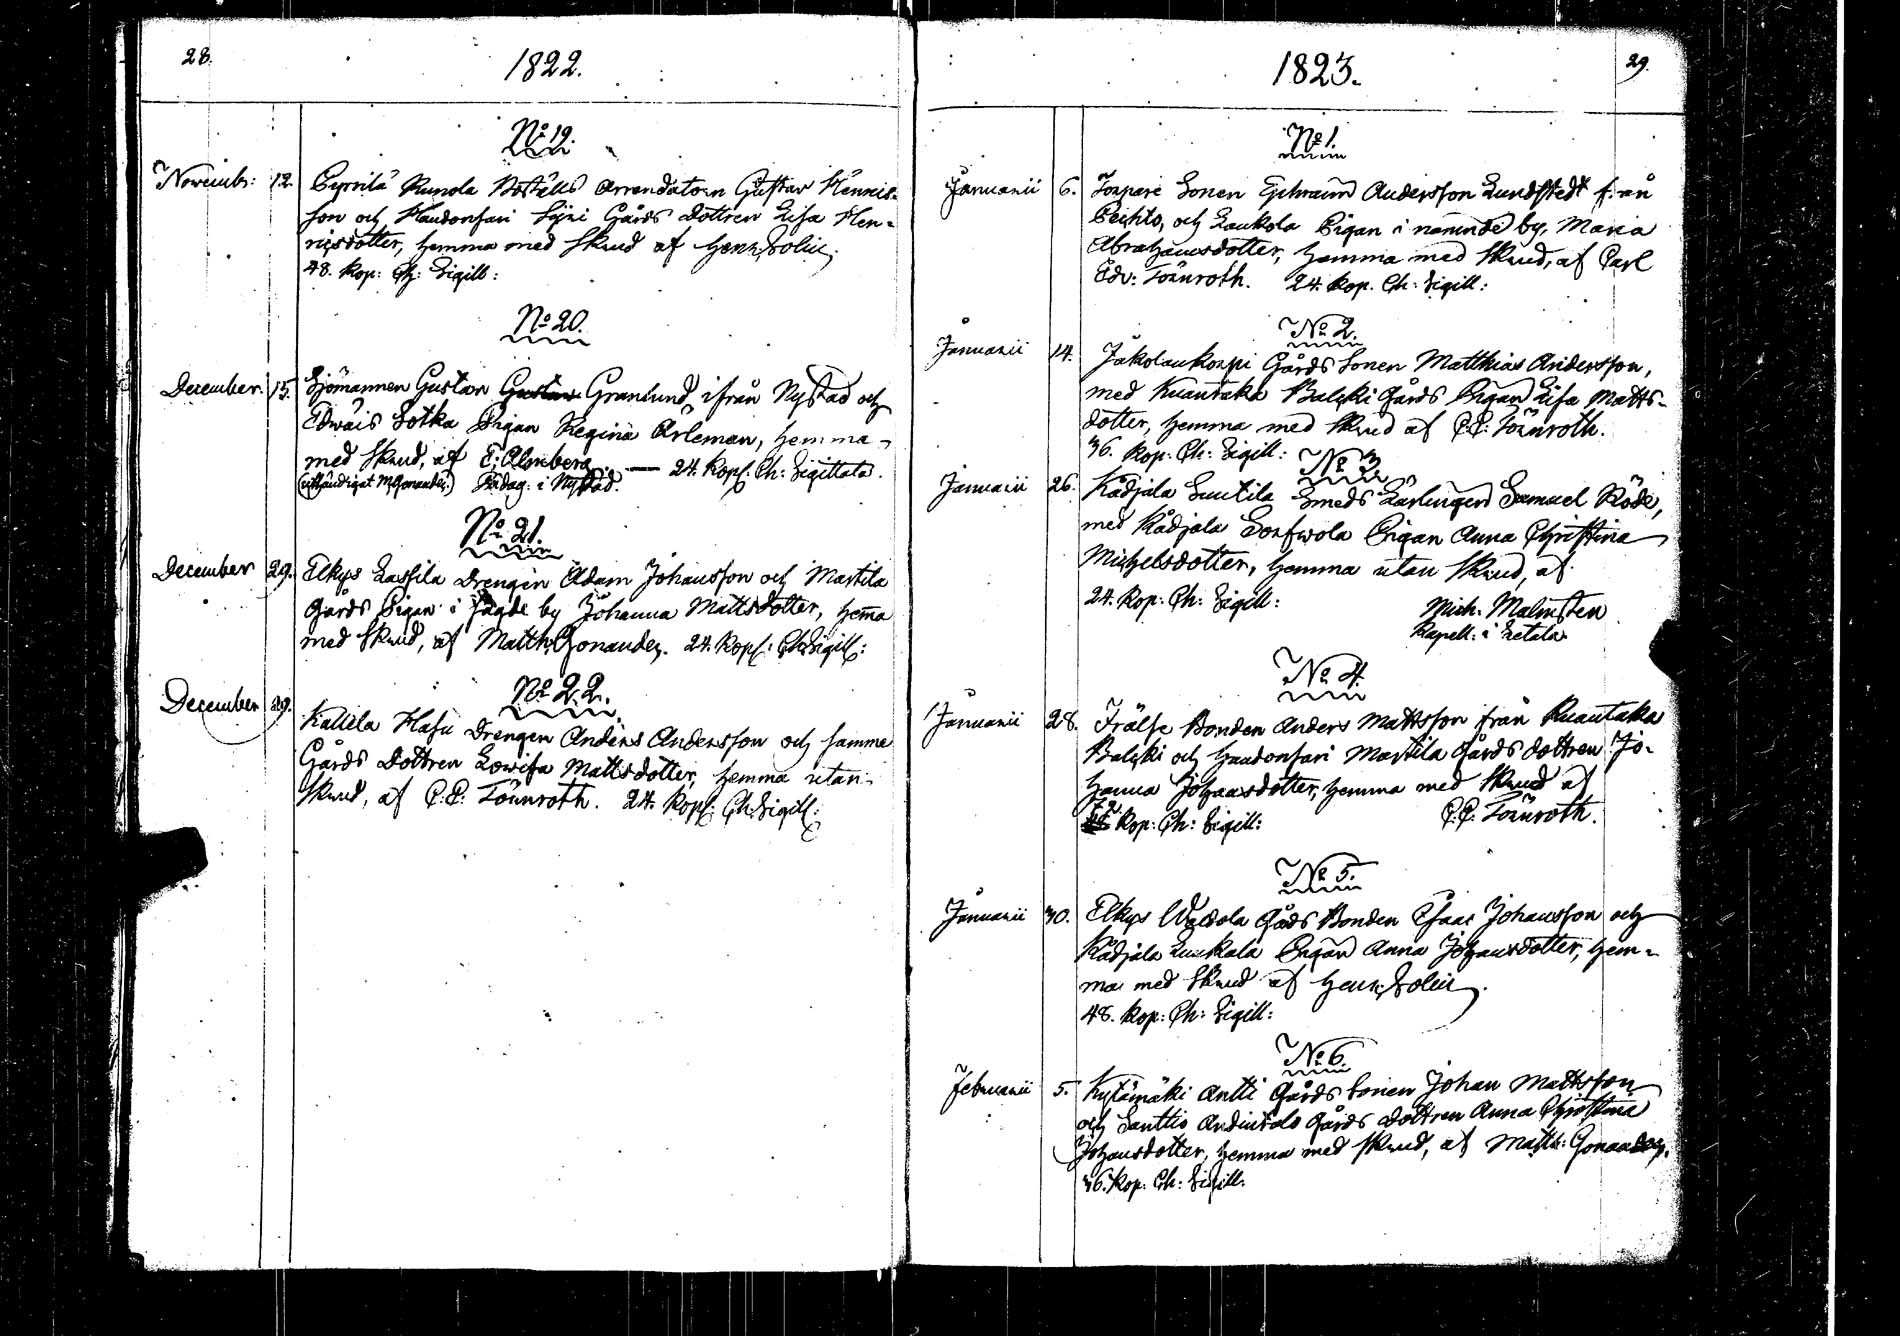 28.
1822.
No 19.
Novemb: 12. Pyrrilä Runola Boställs Arrendatorn Gustav Henrics-
son och Haudonsari Sÿri Gårds dottren Lisa Hen-
ricsdotter, hemma med Skrud af Henr: Polin.
48. Kop: Ch: Sigill:
No 20.
December. 15. Sjömannen Gustav Gustav Granlund ifrån Nystad och
Edwais Sotka Pigan Regina Arleman, hemma
med Skrud, af E. Almberg — 24. Kop. Ch: Sigillata.
M. Gonander) Pädag: i Nystad.
No 21.
December 29. Elkys Lassila Drengen Adam Johansson och Martila
Gårds Pigan i sagde by Johanna Mattsdotter, hem̄a
med Skrud, af Matth: Gonander. 24. Kop: Ch: Sigill:
No 22.
December 29. Kallela Hasu Drengen Anders Andersson och samme
Gårds Dottren Lowisa Mattsdotter, hemma utan
Skrud, af C. E: Tönnroth. 24. Kop: Ch: Sigill:
1823.
29.
No 1.
Januarii 6. Torpare Sonen Ephraim Andersson Lundstedt från
och Laukola Pigan i namnde by, Maria
Abrahamsdotter, hemma med Skrud, af Carl
Edv: Tönnroth. 24. Kop. Ch: Sigill:
No 2.
Januarii 14. Jakolankorpi Gårds Sonen Matthias Andersson,
med Ruantaka Balzki Gårds Pigan Lisa Matts-
dotter, hemma med Skrud af C. E: Tönnroth.
36. Kop: Ch: Sigill:
No 3
Januarii 26. Kådjala Suutila Smeds Lärlingen Samuel Röde,
med Kådjala Sorfwola Pigan Anna Christina
Michelsdotter, hemma utan Skrud, af
24. Kop: Ch: Sigill: Mich: Malmsten
Kapell: i Letala
No 4.
Januarii 28. Frälse Bonden Anders Mattsson från Ruantaka
Balzki och Haudonsari Martila Gårds dottren Jo-
hanna Johansdotter, hemma med Skrud af
72 Kop: Ch: Sigill: C. E: Tönnroth.
No 5.
Januarii 30. Elkys Uckola Gårds Bonden Isaac Johansson och
Kådjala Pigan Anna Johansdotter, hem-
ma med Skrud af Henr: Polin.
48. Kop: Ch: Sigill:
No 6.
Februarii 5. Kytämäki Antti Gårds Sonen Johan Mattsson
och Santtio Gårds dottren Anna Christina
Johansdotter, hemma med Skrud, af Matth: Gonander.
36. Kop: Ch: Sigill: